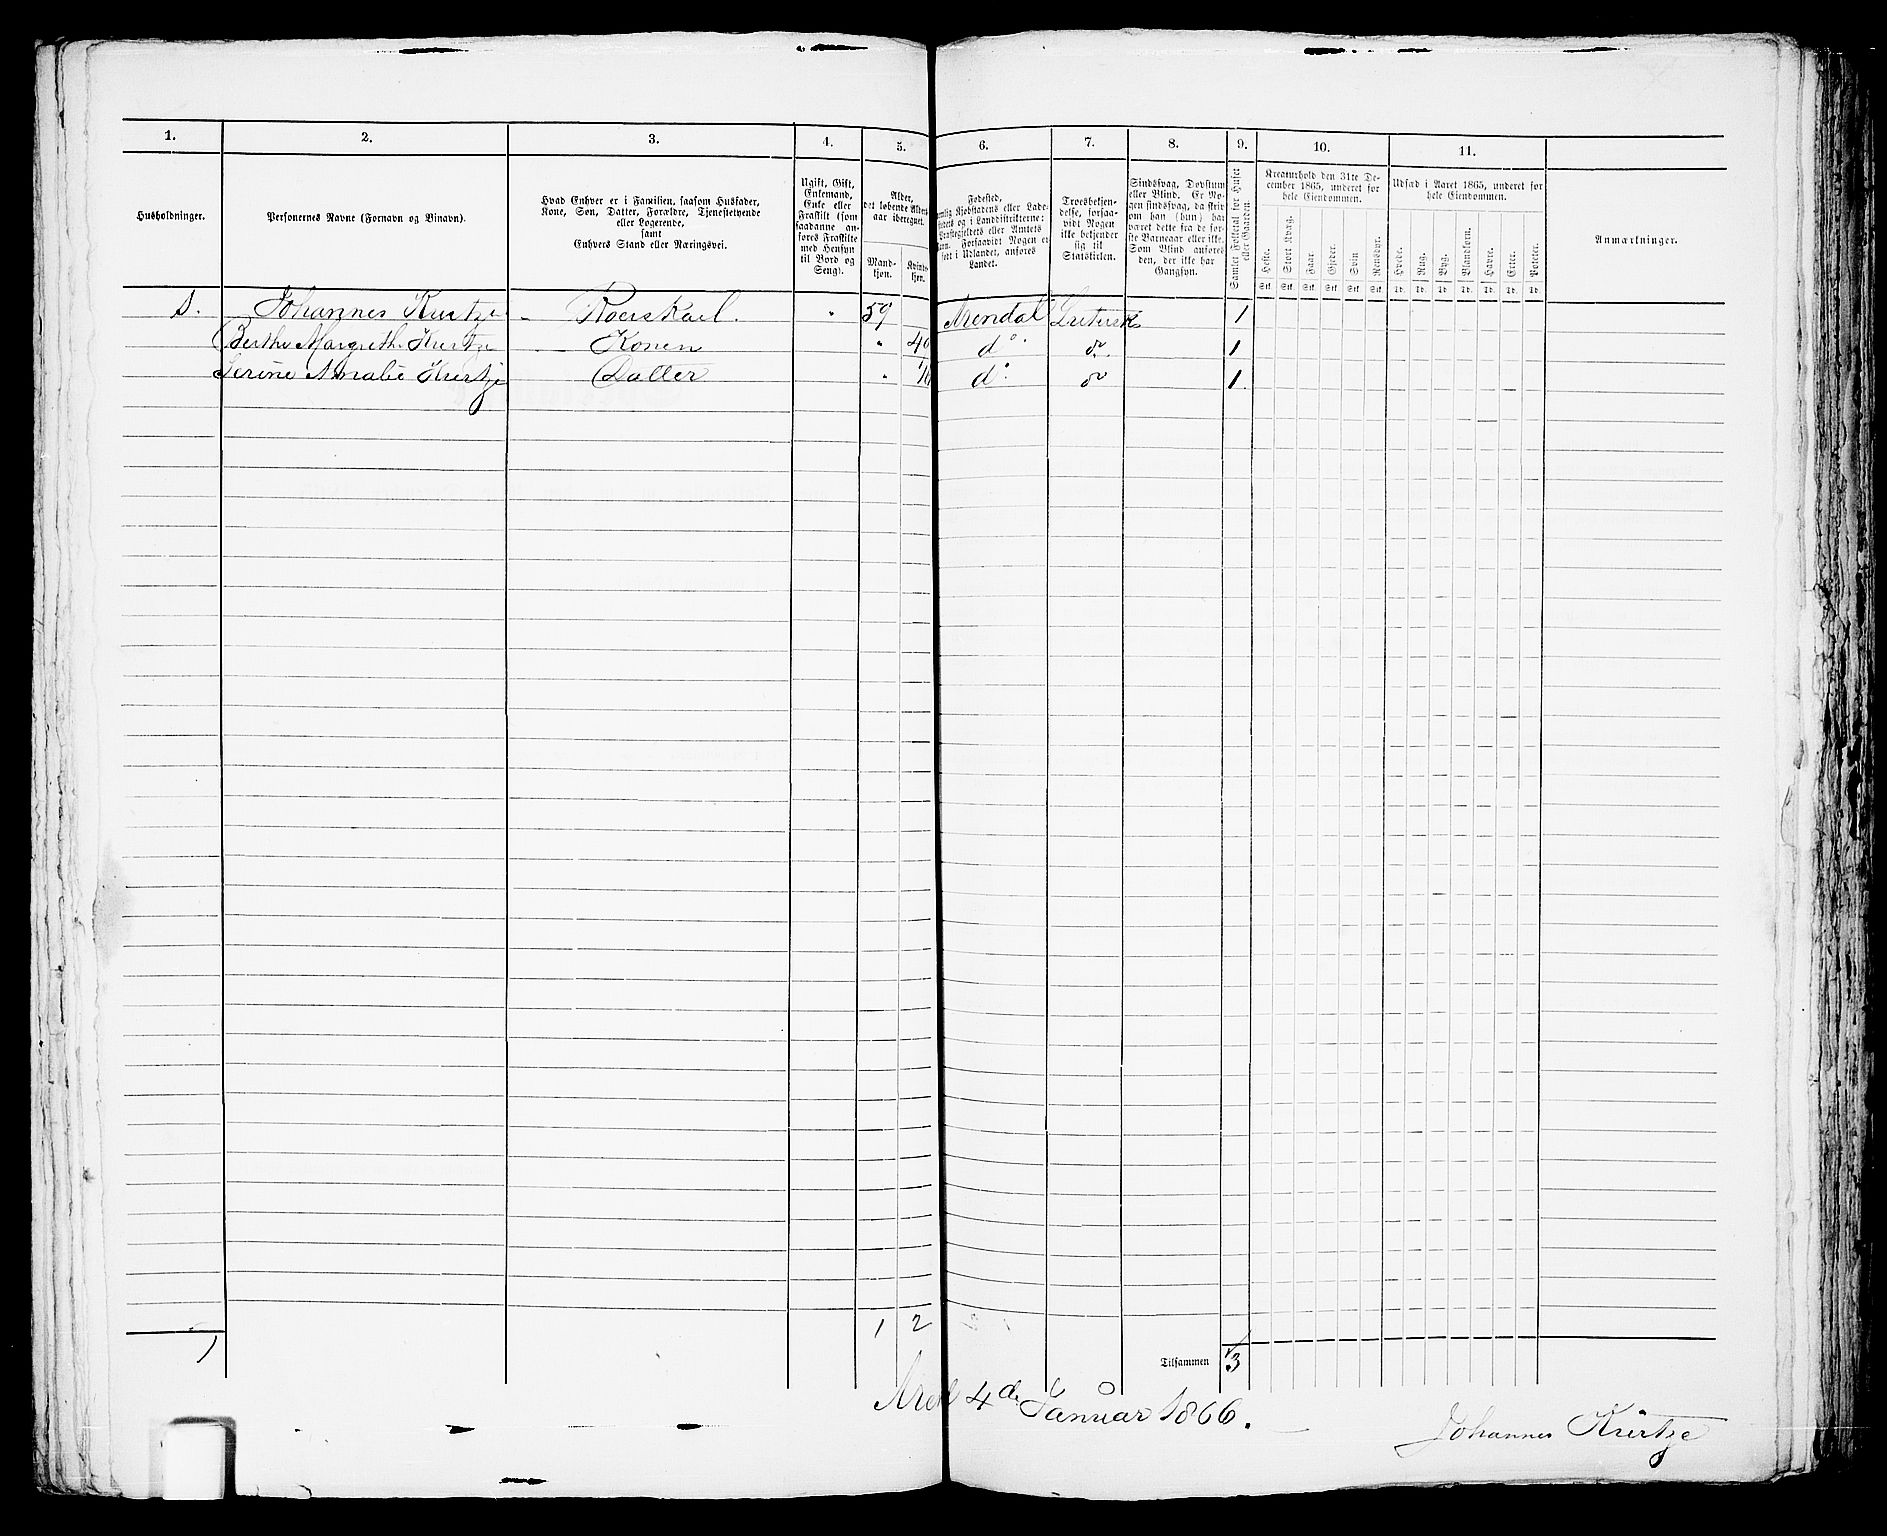 1. 2. 3. 4. 5. 6. 7. 8. 9. 10. 11.
Husholdninger.
Personernes Navne (Fornavn og Binavn).
Hvad Enhver er i Familien, saasom Husfader,
Kone, Søn, Datter, Forældre, Tjenestetyende
eller Logerende,
samt
Enhvers Stand eller Næringsvei.
Ugift, Gift,
Enkemand,
Enke eller
Fraskilt (som
saadanne an-
føres Fraskilte
med Hensyn
til Bord og
Seng).
Alder,
det løbende Alders-
aar iberegnet.
Mand-
kjøn.
Kvinde-
kjøn.
Fødested,
nemlig Kjøbstadens eller Lade-
stedets og i Landdistrikterne:
Præstegjeldets eller Amtets
Navn. Forsaavidt Nogen er
født i Udlandet, anføres
Landet.
Troesbekjen-
delse, forsaa-
vidt Nogen
ikke bekjender
sig til
Statskirken.
Sindssvag, Døvstum
eller Blind. Er No-
gen sindssvag, da skriv
om han (hun) har
været dette fra de før-
ste Barneaar eller ikke.
Som Blind anføres
den, der ikke har
Gangsyn.
Samlet Folketal for Huset
eller Gaarden.
Kreaturhold den 31te De-
cember 1865, underet for
hele Eiendommen.
Heste. Stort Kvæg. Faar. Gjeder. Svin Rensdyr.
Stk. Stk. Stk. Stk. Stk. Stk.
Udsæd i Aaret 1865, underet for
hele Eiendommen.
Hvede. Rug. Byg. Blandkorn. Havre. Erter. Poteter.
Td. Td. Td. Td. Td. Td. Td.
Anmærkninger.
1. Johannes Kürtze - Roerskarl. " 59 Arendal Lutersk 1
Berthe Margrethe Kürtze Konen " 40 do. do. 1
Serine Amalie Kürtze Datter " do. do 1
1 2
1
Tilsammen 3
4de Januar 1866.
Johannes Kürtze